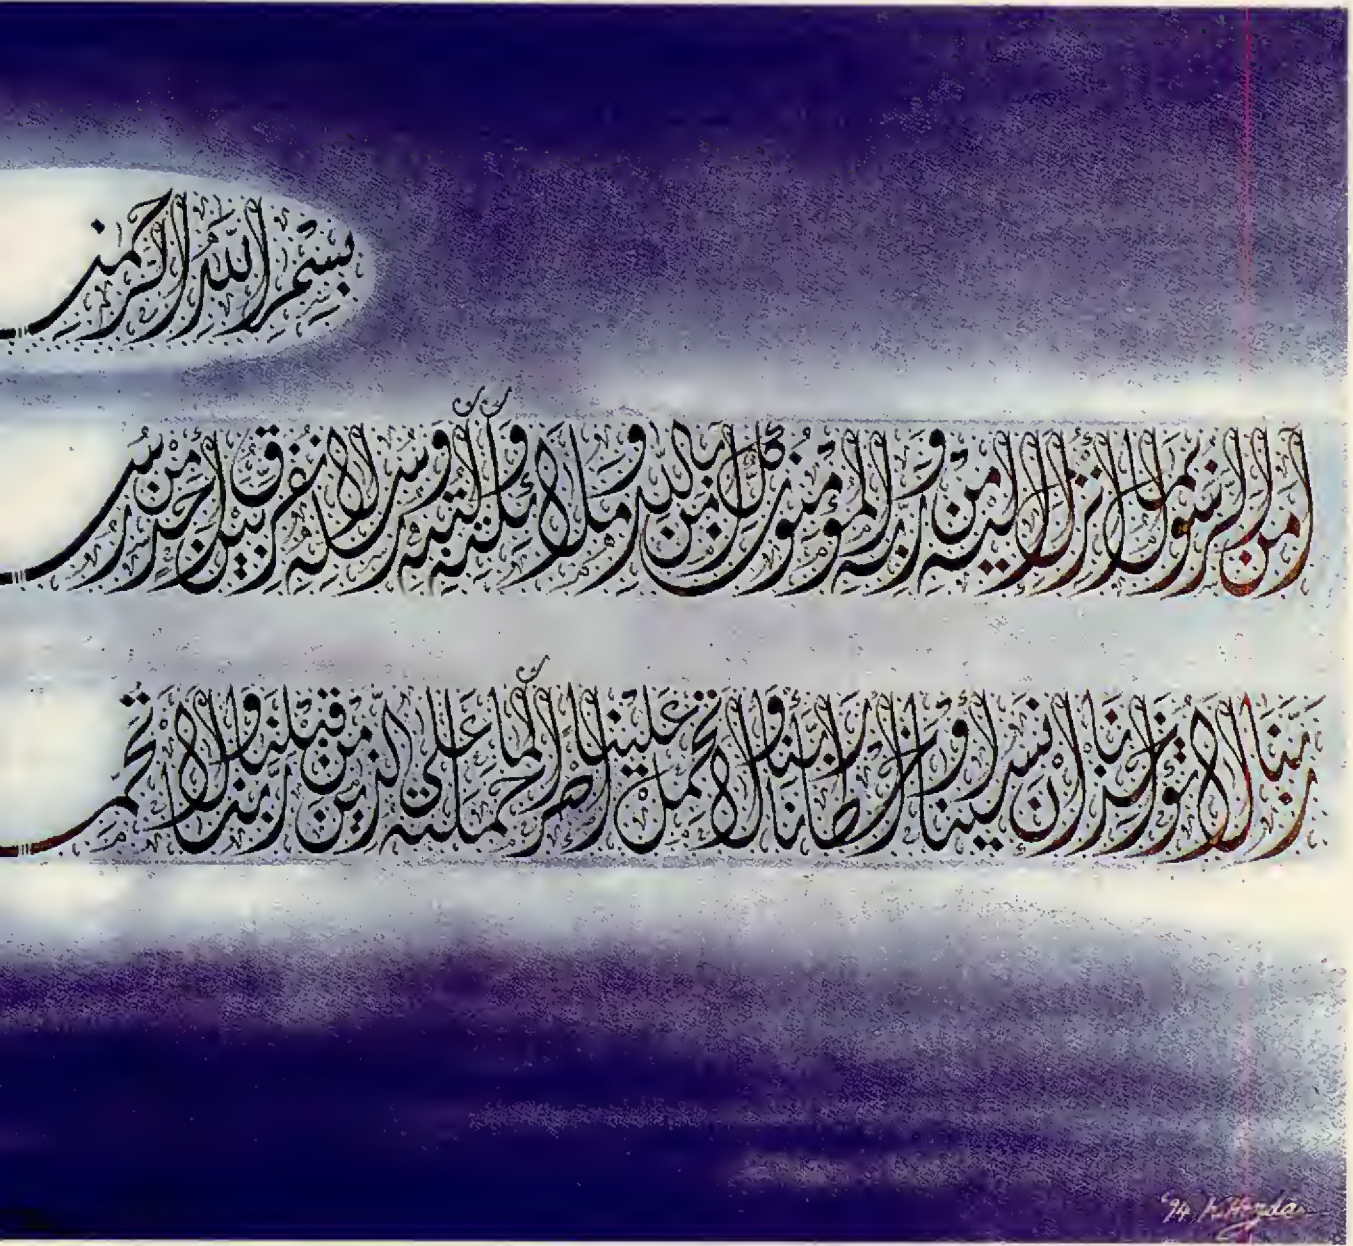 بسم الله الرحمن
آمن الرسول بما أنزل إليه من ربه والمؤمنون كل آمن بالله وملائكته وكتبه ورسله لا نفرق بين أحد من رس
ربنا لا تؤاخذنا إن نسينا أو أخطأنا ربنا ولا تحمل علينا إصرا كما حملته على الذين من قبلنا ربنا ولا تحم
'94 K. Honda